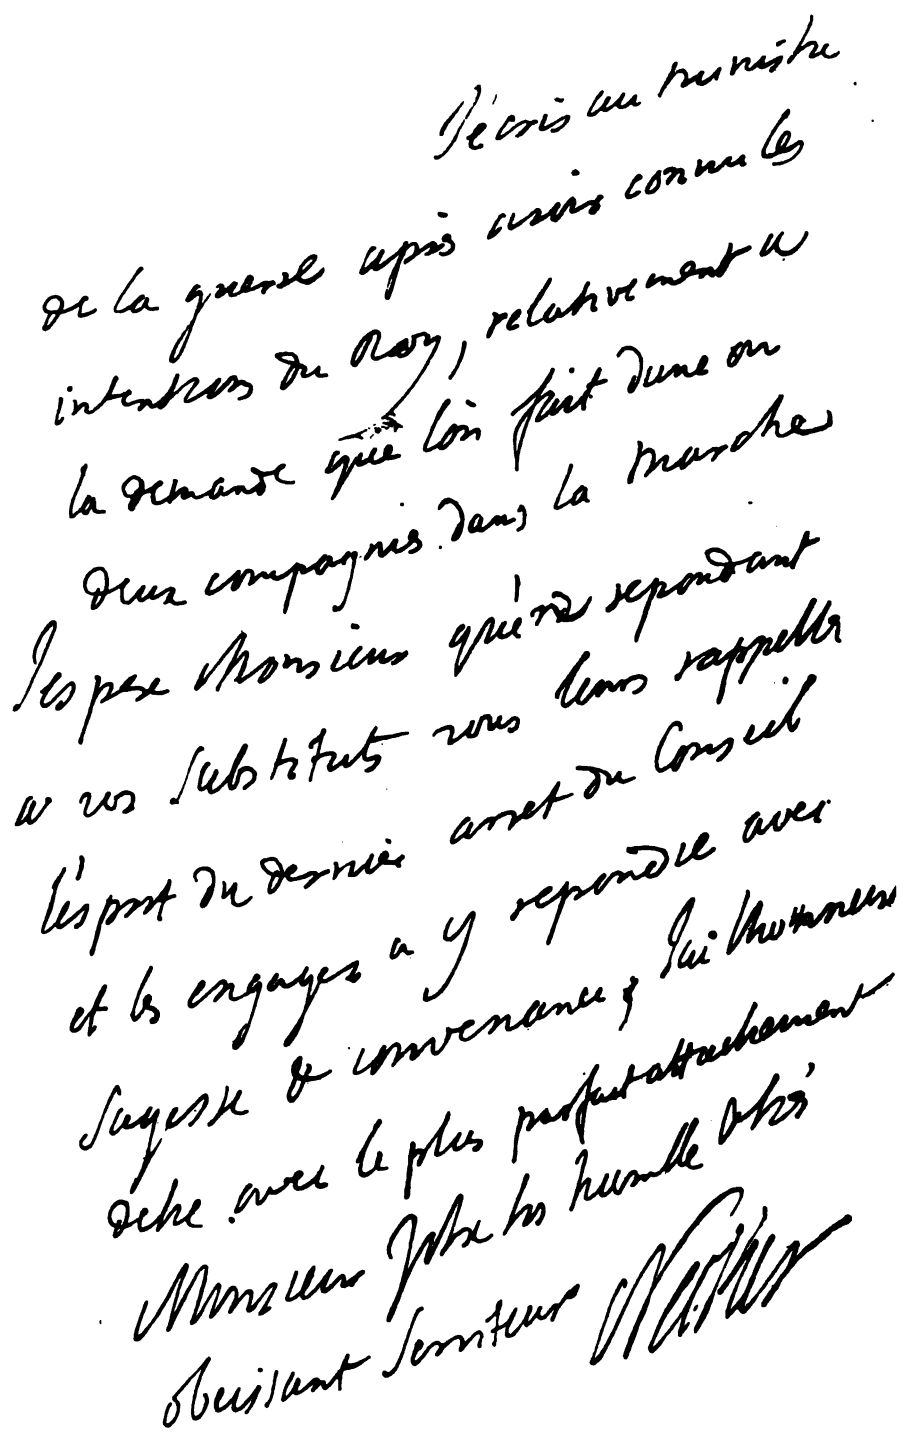 J'écris au ministre
de la guerre après avoir connu les
intentions du Roy, relativement a
la demande que l'on fait dune ou
deux compagnies dans la marche
J'espere Monsieur qu'en repondant
a vos substituts vous leurs rappellés
l'esprit du dernier arret du Conseil
et les engagés a y repondre avec
sagesse & convenance, J'ai lhonneur
detre avec le plus parfait attachement
Monsieur Votre tres humble & tres
obeissant serviteur Necker